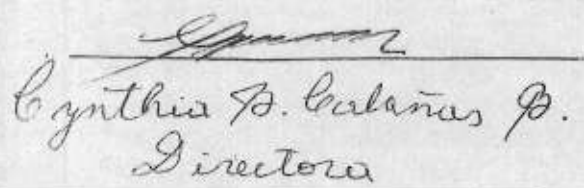 Cynthia P. Calañas P.
Directora